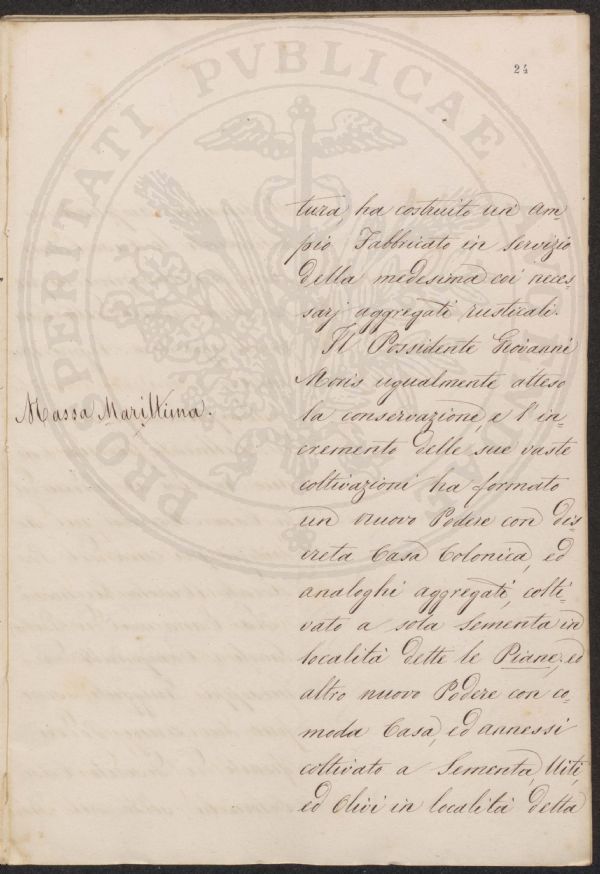 24
tura, ha costruito un' am-
pio Fabbricato in servizio
della medesima coi neces-
sarj aggregati rusticali.
Il Possidente Giovanni
Moris ugualmente atteso
la conservazione, e l'in-
cremento delle sue vaste
coltivazioni ha formato
un nuovo Podere con dis-
creta Casa Colonica, ed
analoghi aggregati, colti-
vato a sola Sementa in
località dette le Piane, ed
altro nuovo Podere con co-
moda Casa, ed annessi
coltivato a Sementa, Viti,
ed Olivi in località detta
Massa Marittima.
PROSPERITATI PVBLICAE